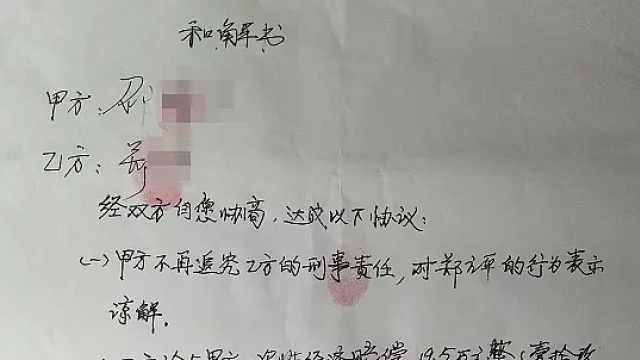 和解书
甲方：邵
乙方：郑
经双方自愿协商，达成以下协议：
(一)甲方不再追究乙方的刑事责任，对郑立平的行为表示
谅解。